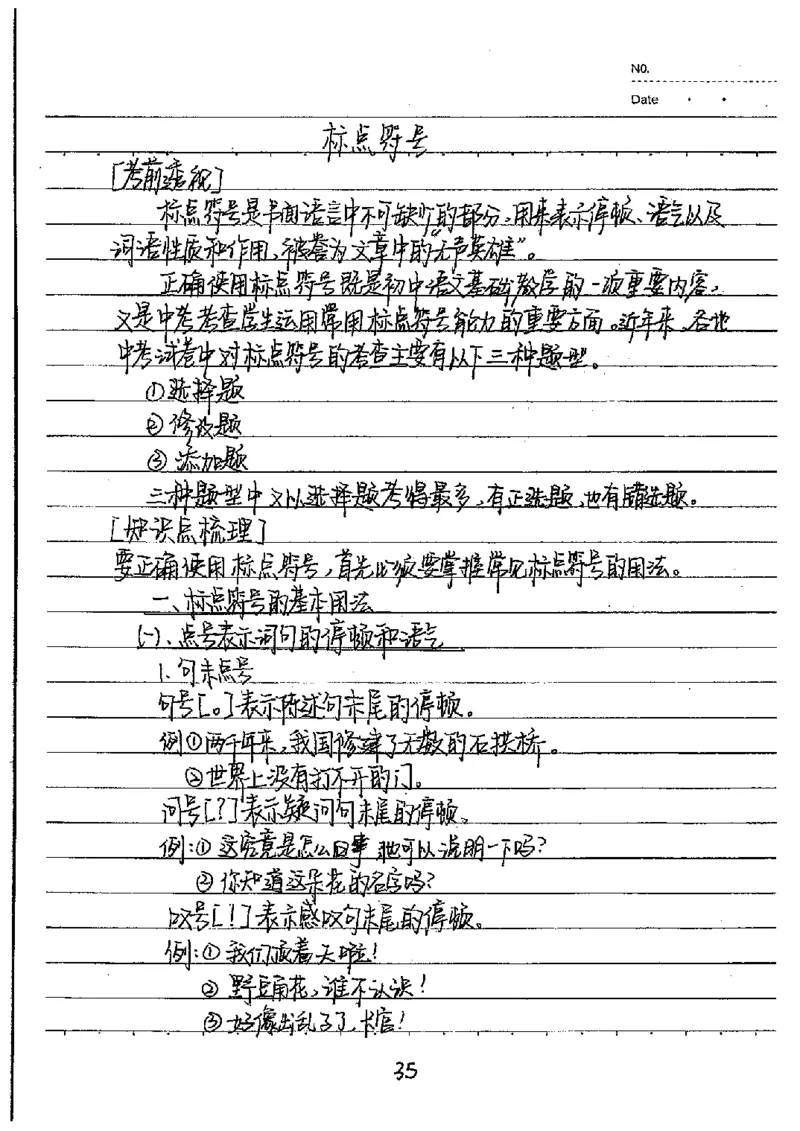 NO.
Date
标点符号
[考前透视]
标点符号是书面语言中不可缺少的部分,用来表示停顿、语气以及
词语性质和作用,被誉为文章中的“无声英雄”。
正确使用标点符号既是初中语文基础教学的一项重要内容,
又是中考考查学生运用常用标点符号能力的重要方面。近年来、各地
中考试卷中对标点符号的考查主要有以下三种题型。
①选择题
②修改题
③添加题
三种题型中又以选择题考得最多,有正选题,也有错选题。
[知识点梳理]
要正确使用标点符号,首先必须要掌握常见标点符号的用法。
一、标点符号的基本用法
(一)、点号表示词句的停顿和语气
1.句末点号
句号[。]表示陈述句末尾的停顿。
例①两千年来,我国修建了无数的石拱桥。
②世界上没有打不开的门。
问号[?]表示疑问句末尾的停顿。
例:①这究竟是怎么回事 她可以说明一下吗?
②你知道这朵花的名字吗?
叹号[!]表示感叹句末尾的停顿。
例:①我们顶着天啦!
②野豆角花,谁不认识!
③好像出乱子了,长官!
35